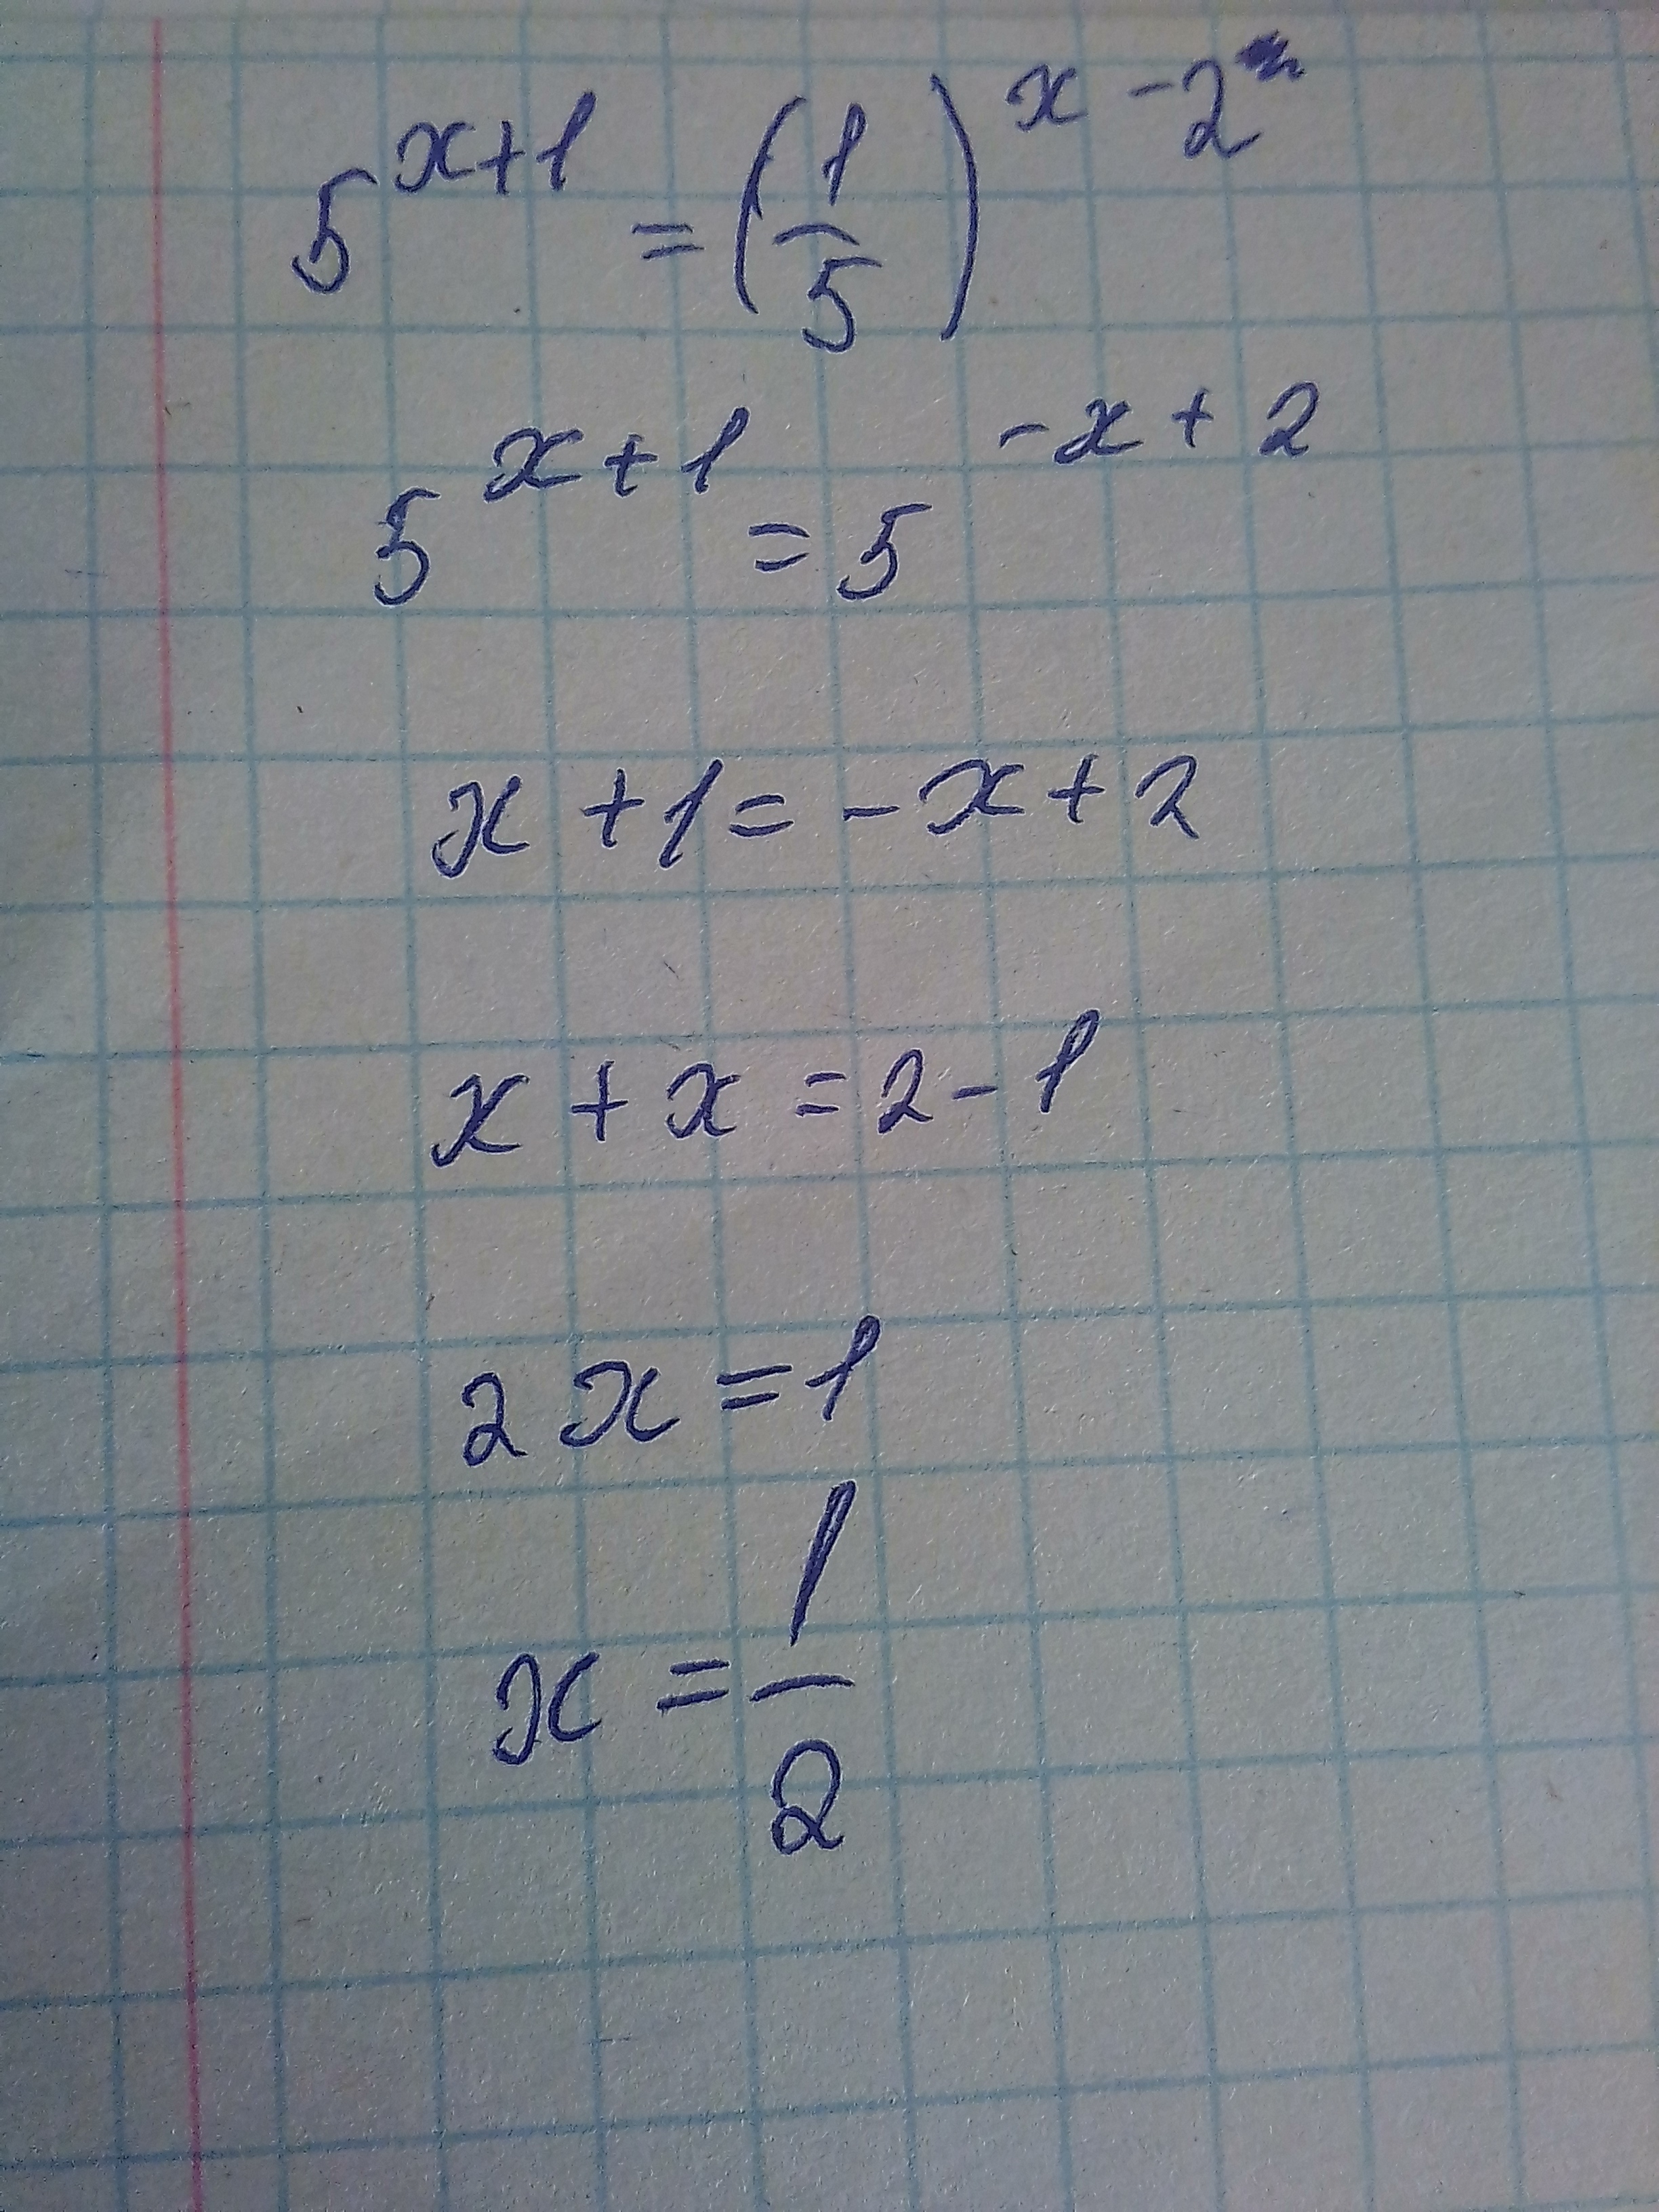 5^{x+1} = (1/5)^{x-2}
5^{x+1} = 5^{-x+2}
x + 1 = -x + 2
x + x = 2 - 1
2x = 1
x = 1/2